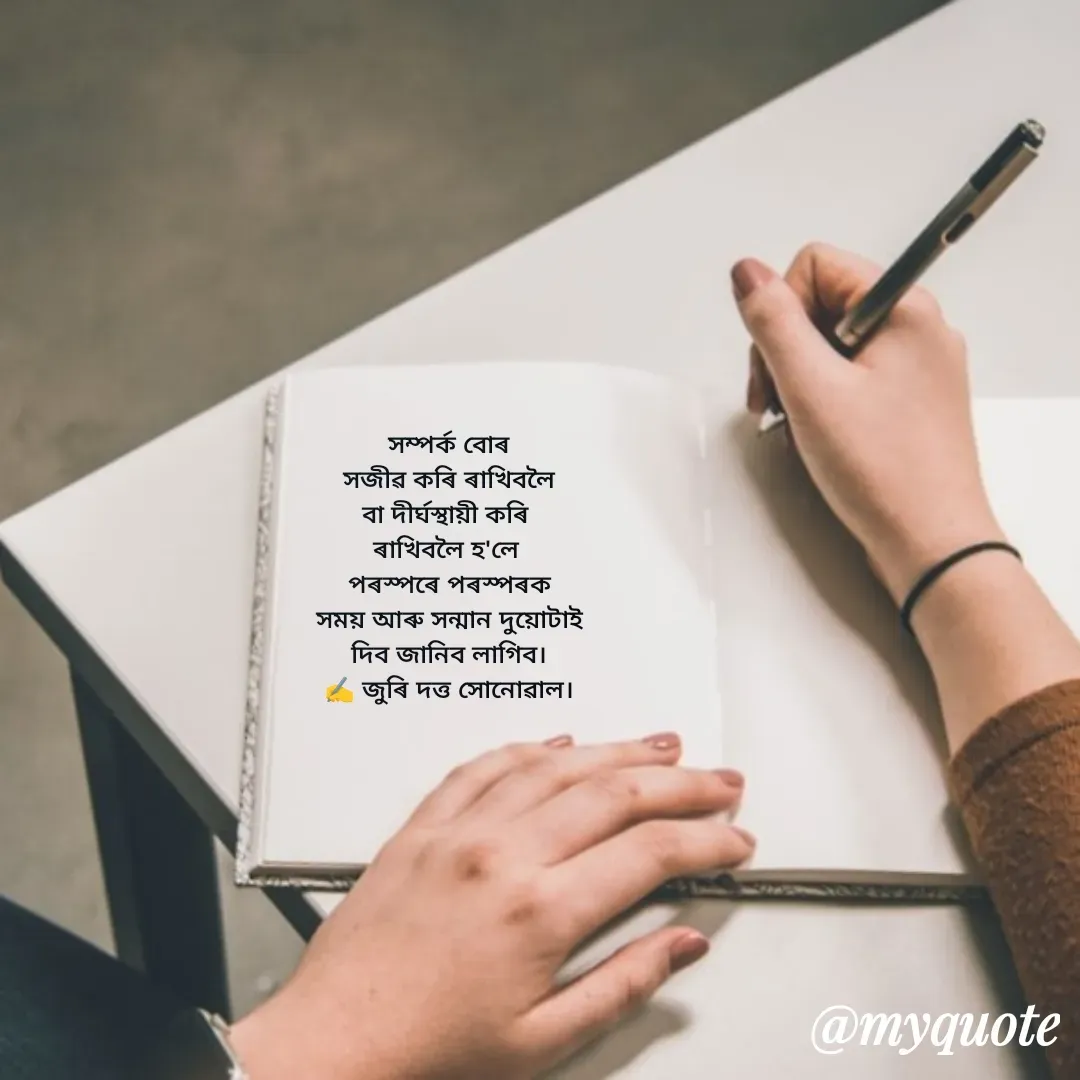 সম্পৰ্ক বোৰ
সজীৱ কৰি ৰাখিবলৈ
বা দীৰ্ঘস্থায়ী কৰি
ৰাখিবলৈ হ'লে
পৰস্পৰে পৰস্পৰক
সময় আৰু সন্মান দুয়োটাই
দিব জানিব লাগিব।
✍️ জুৰি দত্ত সোনোৱাল।
@myquote